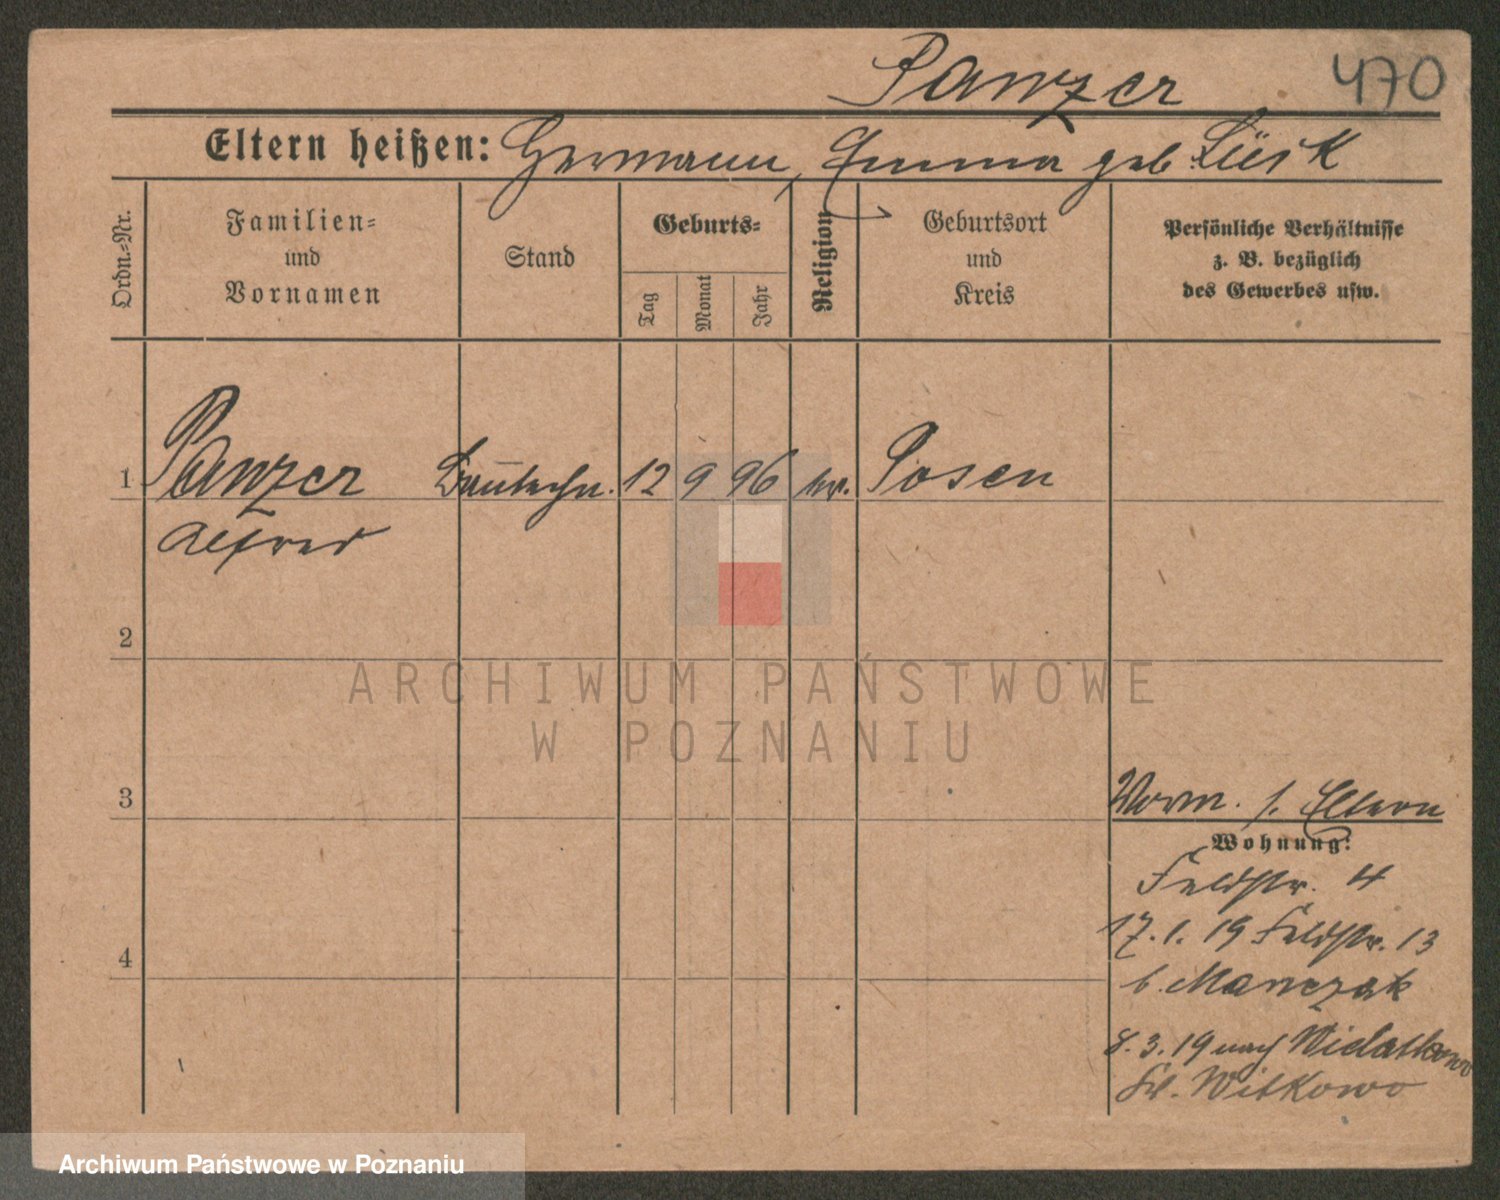 Panzer 470
Eltern heißen: Hermann, Emma geb Lück
Ordn.-Nr.
Familien=
und
Vornamen
Stand
Geburts=
Tag
Monat
Jahr
Religion
Geburtsort
und
Kreis
Persönliche Verhältnisse
z. B. bezüglich
des Gewerbes usw.
1 Panzer Bautechn. 12 9 96 ev. Posen
Alfred
2
ARCHIWUM PAŃSTWOWE
W POZNANIU
3
Vorm. s. Eltern
Wohnung:
Feldstr. 4
17.1.19 Feldstr. 13
4
b. Manczak
8.3.19 nach
Witkowo
Archiwum Państwowe w Poznaniu